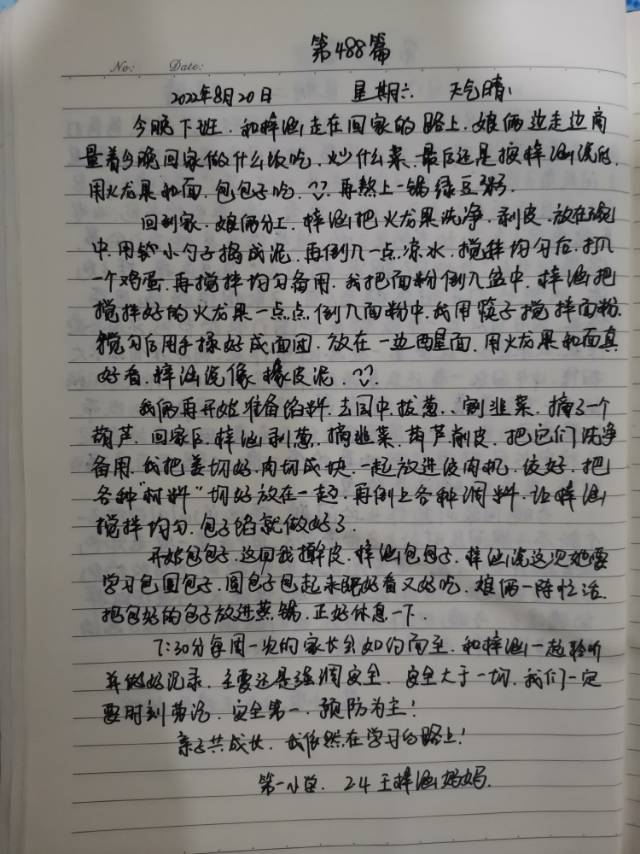 第488篇
No: Date:
2022年8月20日 星期六 天气晴
今晚下班.和梓涵走在回家的路上.娘俩边走边商
量着今晚回家做什么饭吃、炒什么菜.最后还是按梓涵说的.
用火龙果和面.包包子吃.再熬上一锅绿豆粥.
回到家.娘俩分工.梓涵把火龙果洗净.剥皮.放在碗
中.用小勺子捣成泥.再倒入一点凉水.搅拌均匀后.打入
一个鸡蛋.再搅拌均匀备用.我把面粉倒入盆中.梓涵把
搅拌好的火龙果一点点倒入面粉中.我用筷子搅拌面粉.
搅匀后用手揉好成面团.放在一边醒面.用火龙果和面真
好看.梓涵说像橡皮泥.
我俩再开始准备馅料.去园中.拔葱、割韭菜.摘了一个
葫芦.回家后.梓涵剥葱.摘韭菜.葫芦削皮.把它们洗净
备用.我把姜切好.肉切成块.一起放进绞肉机.绞好.把
各种“材料”切好放在一起.再倒上各种调料.让梓涵
搅拌均匀.包子馅就做好了.
开始包包子.这回我擀皮.梓涵包包子.梓涵说这次她要
学习包圆包子.圆包子包起来既好看又好吃.娘俩一阵忙活.
把包好的包子放进蒸锅.正好休息一下.
7:30分每周一次的家长会如约而至.和梓涵一起聆听
并做好记录.主要还是强调安全.安全大于一切.我们一定
要时刻劳记.安全第一.预防为主!
亲子共成长.我依然在学习的路上!
第一小学. 2.4 王梓涵妈妈.